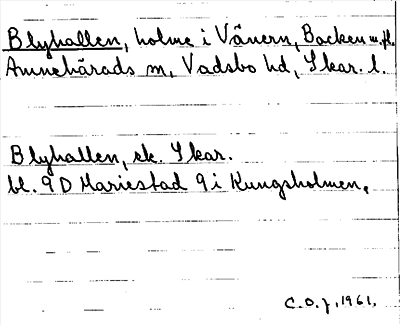 Blyhallen, holme i Vänern, Backen m.fl.
Amnehärads sn, Vadsbo hd, Skar. l.
Blyhallen, ek. Skar.
bl. 9D Mariestad 9 i Kungsholmen.
C.O.J, 1961.